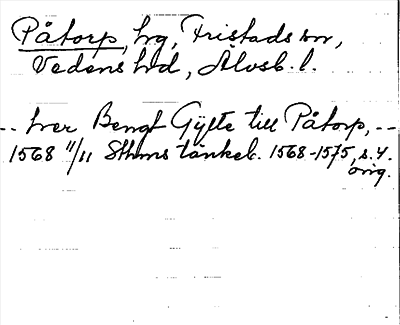 Påtorp, hg, Fristads sn,
Vedens hd, Älvsb. l.
-- her Bengt Gylte till Påtorp, --
1568 11/11 Sthms tänkeb. 1568-1575, s. 4.
orig.